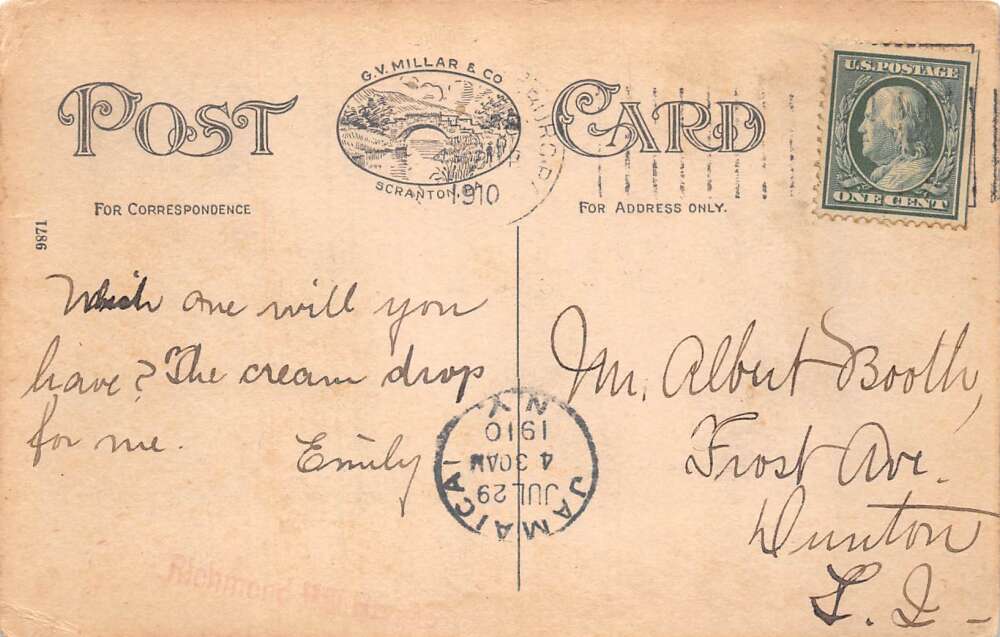 POST CARD
G.V. MILLAR & CO
SCRANTON, PA.
1910
U.S. POSTAGE
ONE CENT
FOR CORRESPONDENCE
FOR ADDRESS ONLY.
9871
Which one will you
have? The cream drop
for me.
Emily
Mr. Albert Booth,
Frost Ave.
Dunton
L. I.
JAMAICA
JUL 29
4 30 AM
1910
N.Y.
Richmond